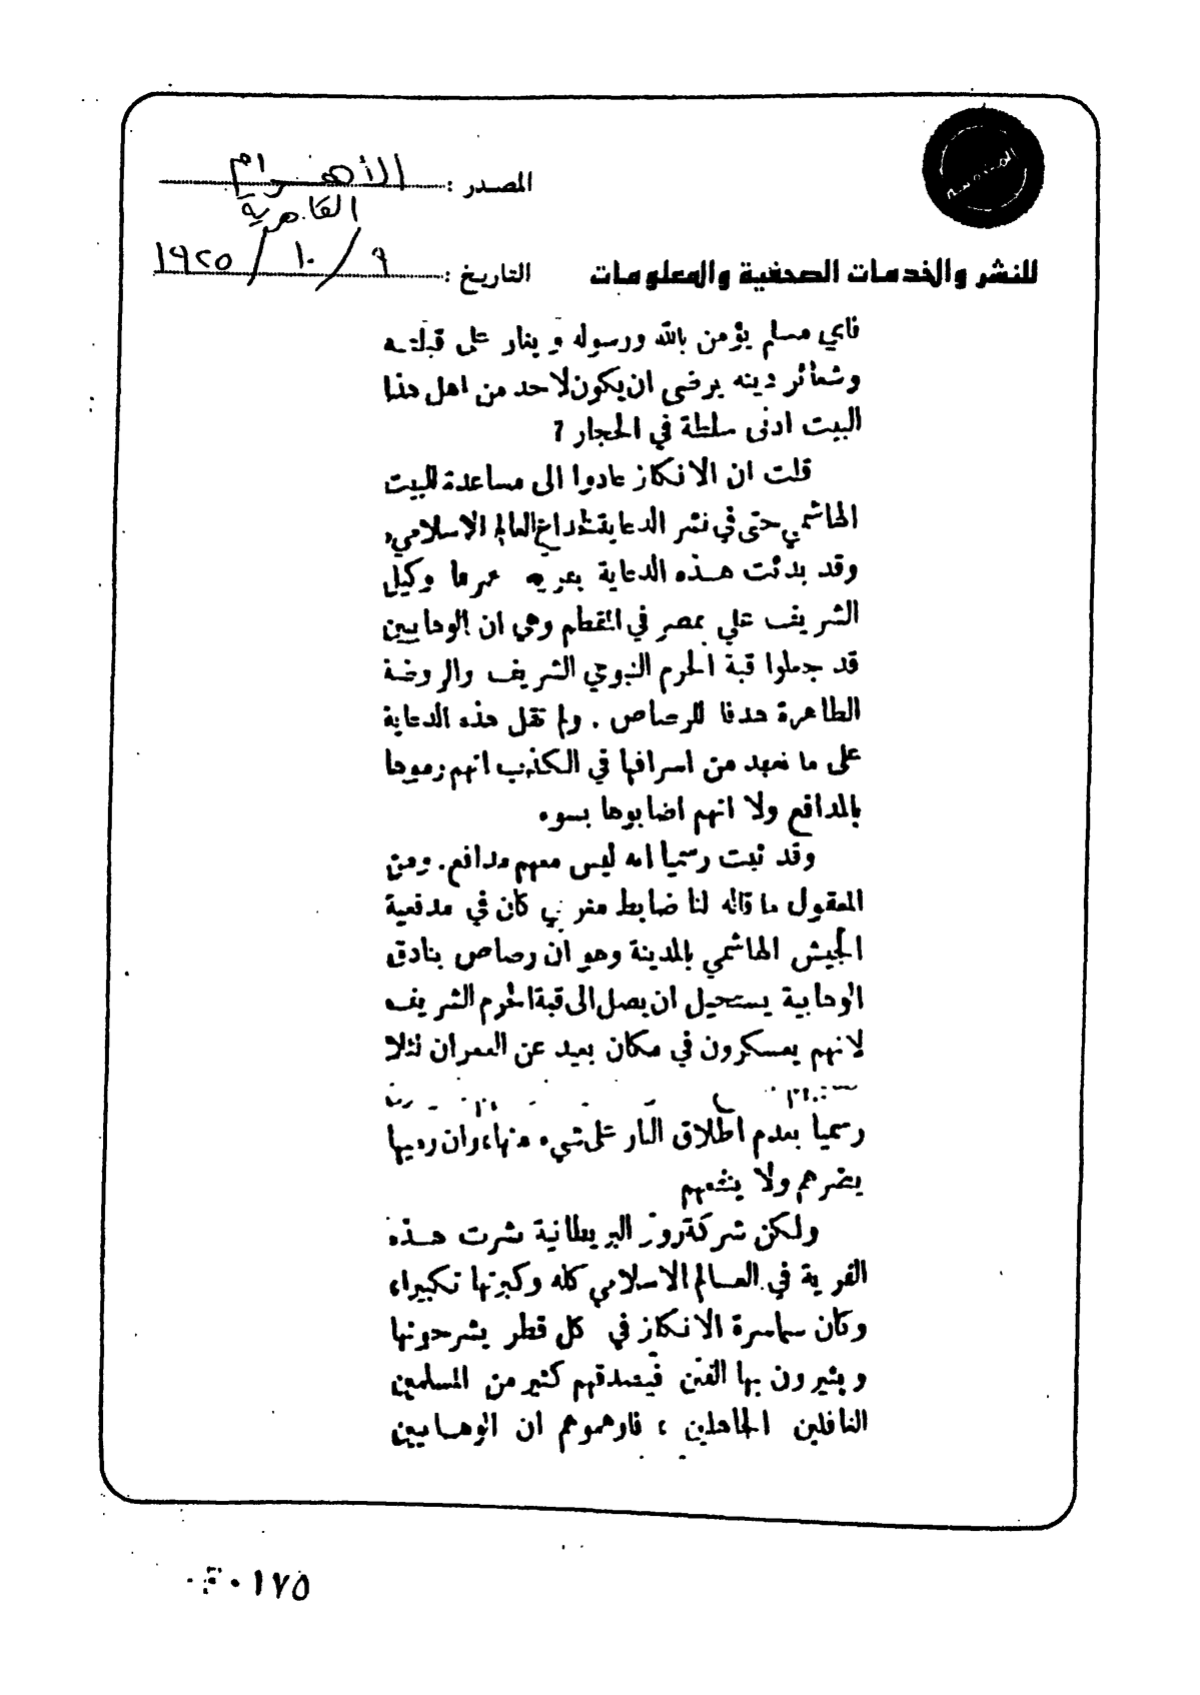 المصدر : الأهرام
القاهرية
للنشر والخدمات الصحفية والمعلومات
التاريخ : ٩ / ١٠ / ١٩٢٥
فأي مسلم يؤمن بالله ورسوله ويغار على قبلته
وشعائر دينه يرضى ان يكون لاحد من اهل هذا
البيت ادنى سلطة في الحجاز ؟
قلت ان الانكليز عادوا الى مساعدة للبيت
الهاشمي حتى في نشر الدعاية لخداع العالم الاسلامي،
وقد بدئت هذه الدعاية وكيل
الشريف علي بمصر في المقطم وهي ان الوهابيين
قد جعلوا قبة الحرم النبوي الشريف والروضة
الطاهرة هدفا للرصاص . ولم تقل هذه الدعاية
على ما نعهد من اسرافها في الكذب انهم رموها
بالمدافع ولا انهم اصابوها بسوء
وقد ثبت رسميا انه ليس معهم مدافع. ومن
المعقول ما قاله لنا ضابط مغربي كان في مدفعية
الجيش الهاشمي بالمدينة وهو ان رصاص بنادق
الوهابية يستحيل ان يصل الى قبة الحرم الشريف
لانهم يعسكرون في مكان بعيد عن العمران لئلا
رسميا بعدم اطلاق النار على شيء منها، وان رميها
يضرهم ولا ينفعهم
ولكن شركة روتر البريطانية نشرت هذه
الفرية في العالم الاسلامي كله وكبرتها تكبيرا،
وكان سماسرة الانكليز في كل قطر يشرحونها
ويثيرون بها الفتن فيصدقهم كثير من المسلمين
الغافلين الجاهلين ، فاوهموهم ان الوهابيين
٠١٧٥